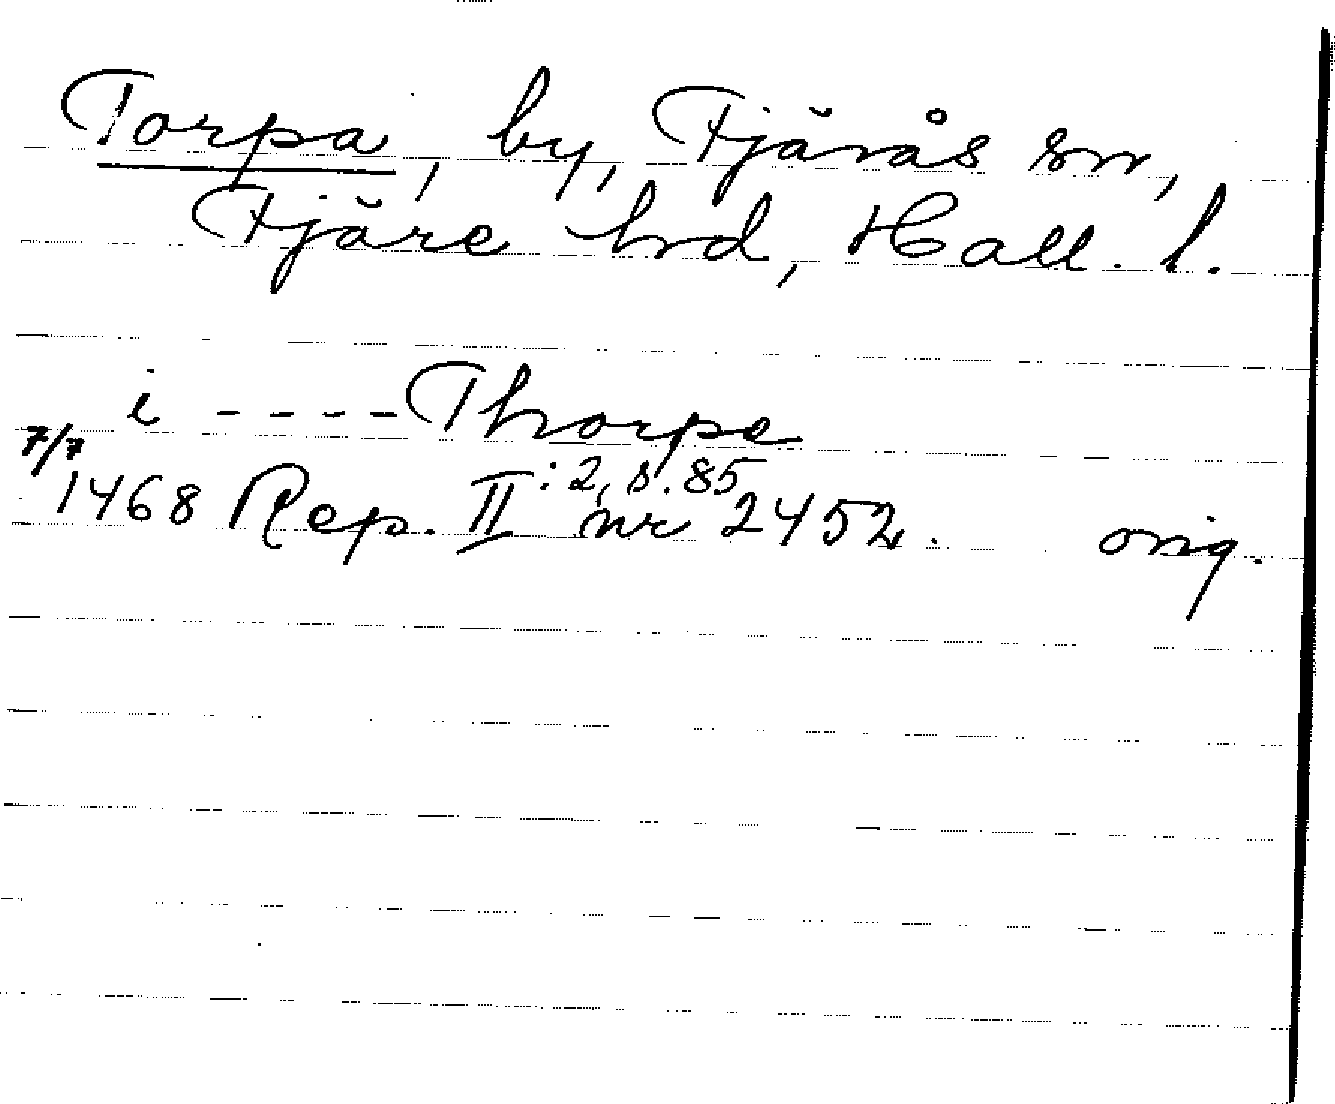 Torpa, by, Fjärås sn,
Fjäre hrd, Hall. l.
i - - - - Thorpe
7/7
1468 Rep. II:2, s. 85 nr 2452. orig.